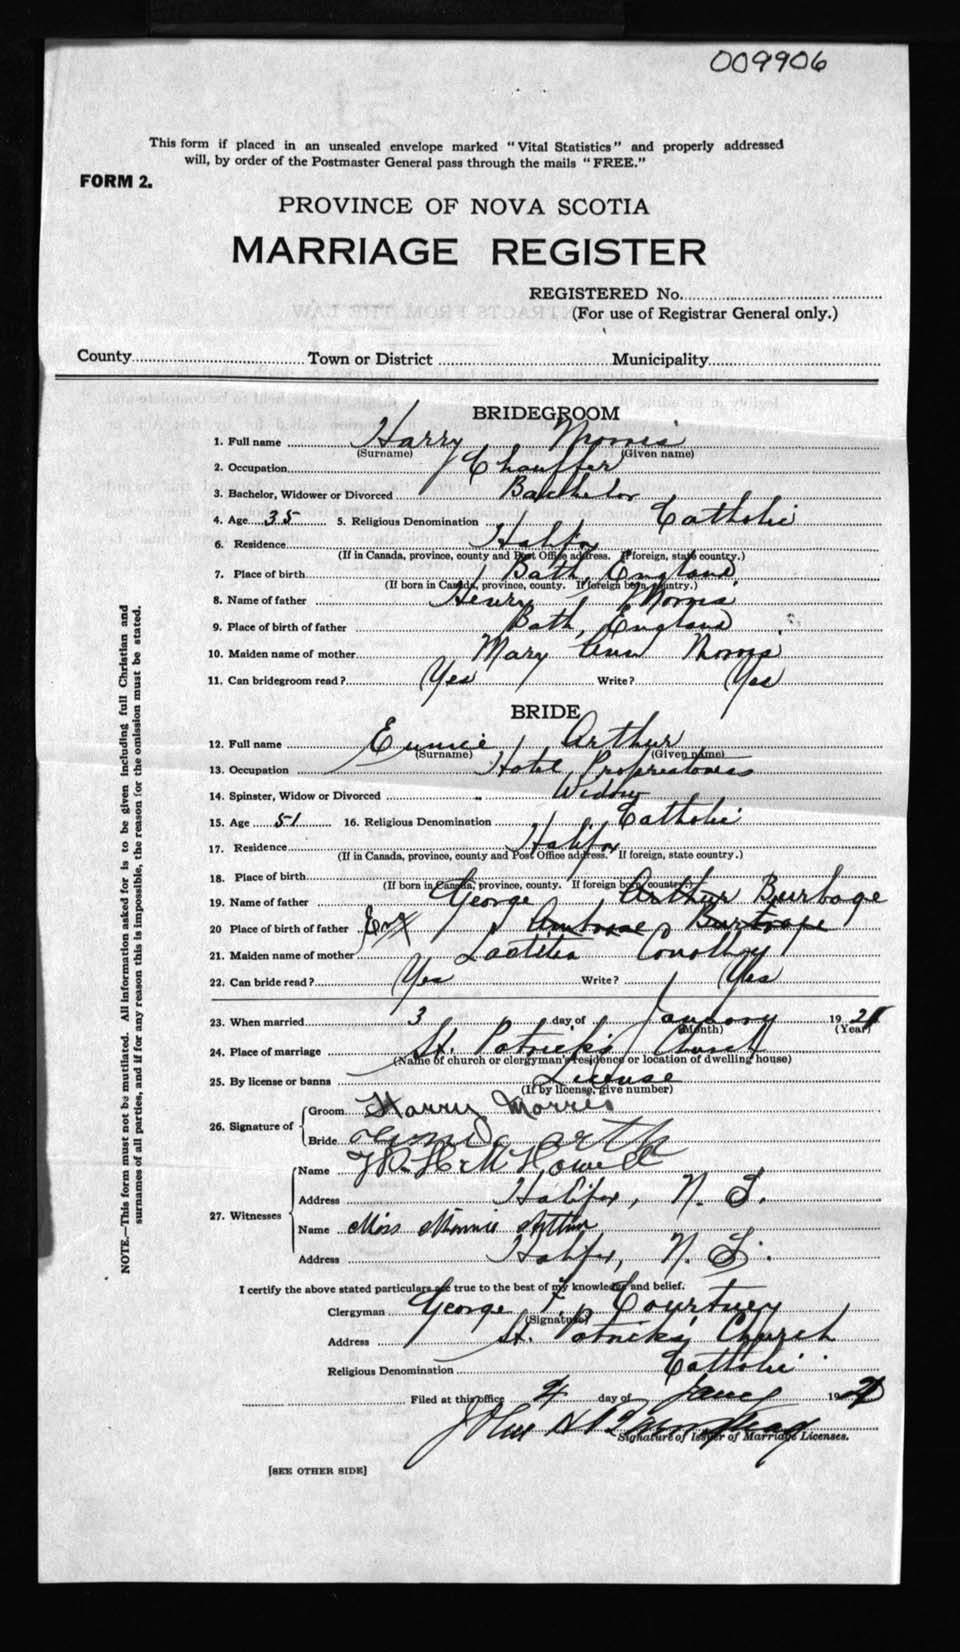 009906
This form if placed in an unsealed envelope marked "Vital Statistics" and properly addressed
will, by order of the Postmaster General pass through the mails "FREE."
FORM 2.
PROVINCE OF NOVA SCOTIA
MARRIAGE REGISTER
REGISTERED No.
(For use of Registrar General only.)
County Town or District Municipality
BRIDEGROOM
1. Full name Harry Morris
(Surname) (Given name)
2. Occupation Chauffer
3. Bachelor, Widower or Divorced Bachelor
4. Age 35 5. Religious Denomination Catholic
6. Residence Halifax
(If in Canada, province, county and Post Office address. If foreign, state country.)
7. Place of birth Bath, England
(If born in Canada, province, county. If foreign born, country.)
8. Name of father Henry Morris
9. Place of birth of father Bath, England
10. Maiden name of mother Mary Ann Morris
11. Can bridegroom read? Yes Write? Yes
BRIDE
12. Full name Eunice Arthur
(Surname) (Given name)
13. Occupation Hotel Proprietoress
14. Spinster, Widow or Divorced Widow
15. Age 51 16. Religious Denomination Catholic
17. Residence Halifax
(If in Canada, province, county and Post Office address. If foreign, state country.)
18. Place of birth
(If born in Canada, province, county. If foreign born country.)
19. Name of father George Arthur Burbage
20 Place of birth of father Ambrose
21. Maiden name of mother Laetitia Conolly
22. Can bride read? Yes Write? Yes
23. When married 3 day of January 19 21
(Month) (Year)
24. Place of marriage St. Patrick's Church
(Name of church or clergyman's residence or location of dwelling house)
25. By license or banns License
(If by license, give number)
26. Signature of Groom Harry Morris
Bride Arthur
27. Witnesses
Name Howell
Address Halifax, N. S.
Name Miss Minnie Arthur
Address Halifax, N. S.
I certify the above stated particulars are true to the best of my knowledge and belief.
Clergyman George F. Courtney
(Signature)
Address St. Patrick's Church
Religious Denomination Catholic
Filed at this office 4 day of Jany 19
John
Signature of Issuer of Marriage Licenses.
[SEE OTHER SIDE]
NOTE.—This form must not be mutilated. All information asked for is to be given including full Christian and
surnames of all parties, and if for any reason this is impossible, the reason for the omission must be stated.